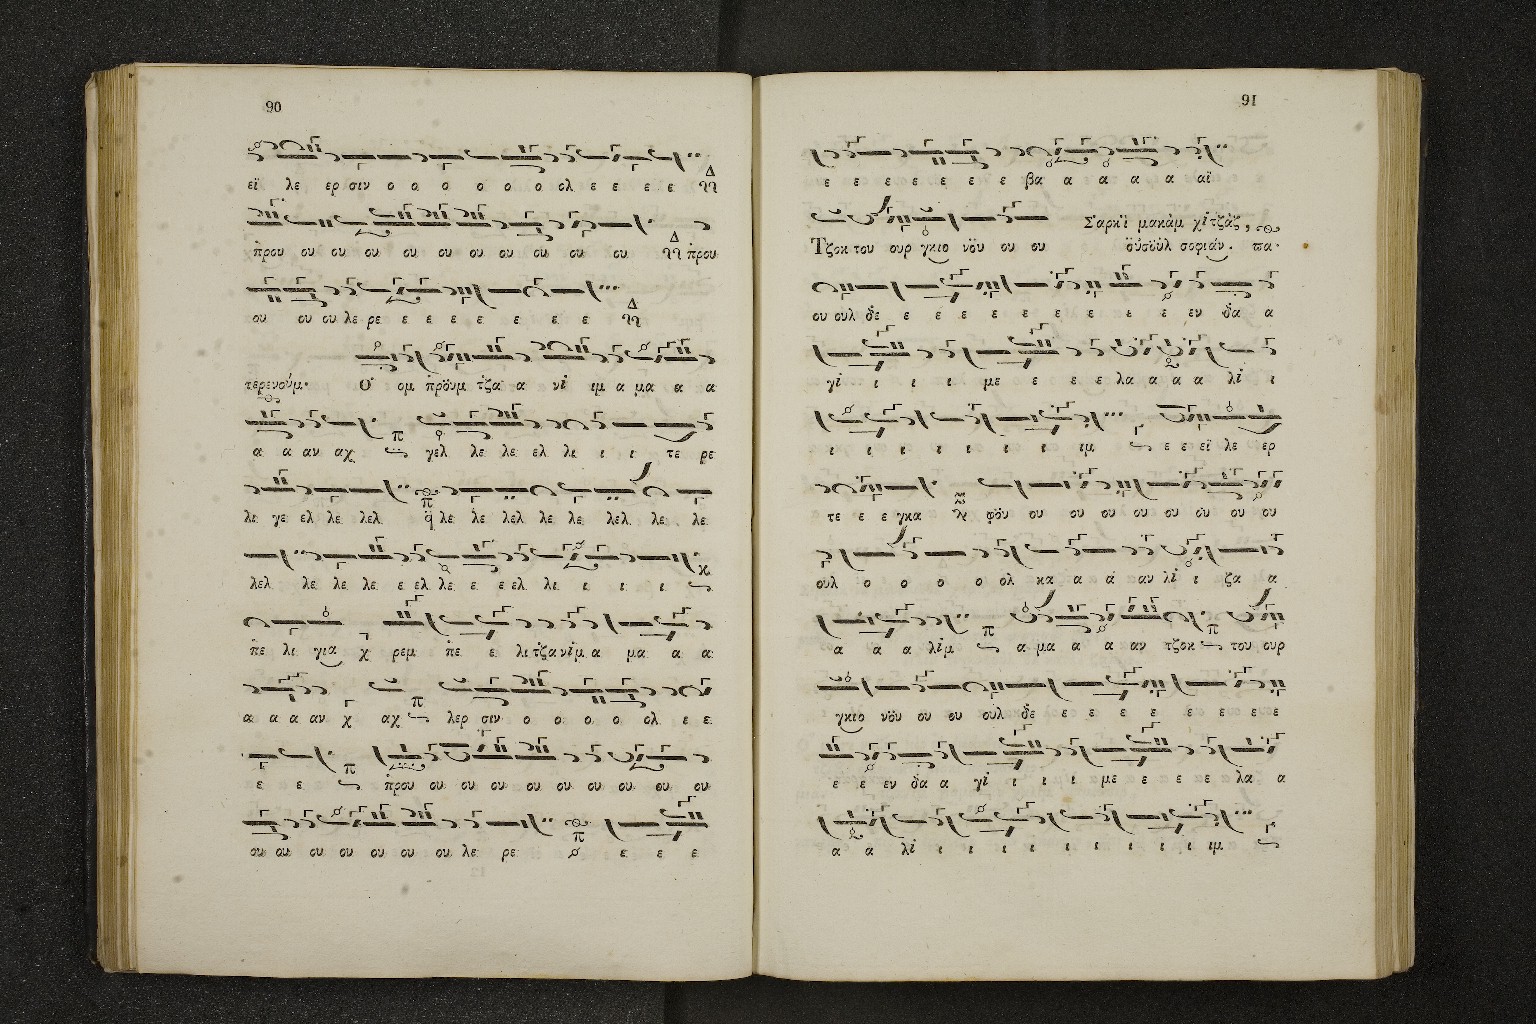 90
εϊ λε ερ σιν ο ο ο ο ο ο ολ ε ε ε ε
πρου ου ου ου ου ου ου ου ου ου ου πρου
ου ου ου λε ρε ε ε ε ε ε ε ε
τερενούμ· Θ ομ προυμ τζα α νι ιμ α μα α α
α α αν αχ γελ λε λε ελ λι ι ι τε ρε
λι γε ελ λε λελ λε λε λελ λε λε λελ λε λε
λελ λε λε λε ε ελ λε ε ε ελ λι ι ι ι
πε λι για χ ρεμ πε ε λι τζα νιμ α μα α α
α α α αν χ αχ λερ σιν ο ο ο ο ολ ε ε
ε ε πρου ου ου ου ου ου ου ου ου ου
ου ου ου ου ου ου ου λε ρε ε ε ε
91
ε ε ε ε ε ε ε βα α α α α αϊ
Σαρκὶ μακὰμ χιτζὰζ,
Τζοκ του ουρ γκιο νόυ ου ου οὐσοὺλ σοφιάν. πα·
ου ουλ δε ε ε ε ε ε ε ε ε ε εν δα α
γι ι ι ι με ε ε ε λα α α α λι ι
ι ι ι ι ι ι ι ιμ ε ε εϊ λε ερ
τε ε ε γκα φόυ ου ου ου ου ου ου ου ου
ουλ ο ο ο ο ολ κα α α αν λι ι ζα α
α α α λιμ α μα α α αν τζοκ του ουρ
γκιο νόυ ου ου ουλ δε ε ε ε ε ε ε ε
ε ε εν δα α γι ι ι ι με ε ε ε ε λα α
α α λι ι ι ι ι ι ι ι ι ιμ